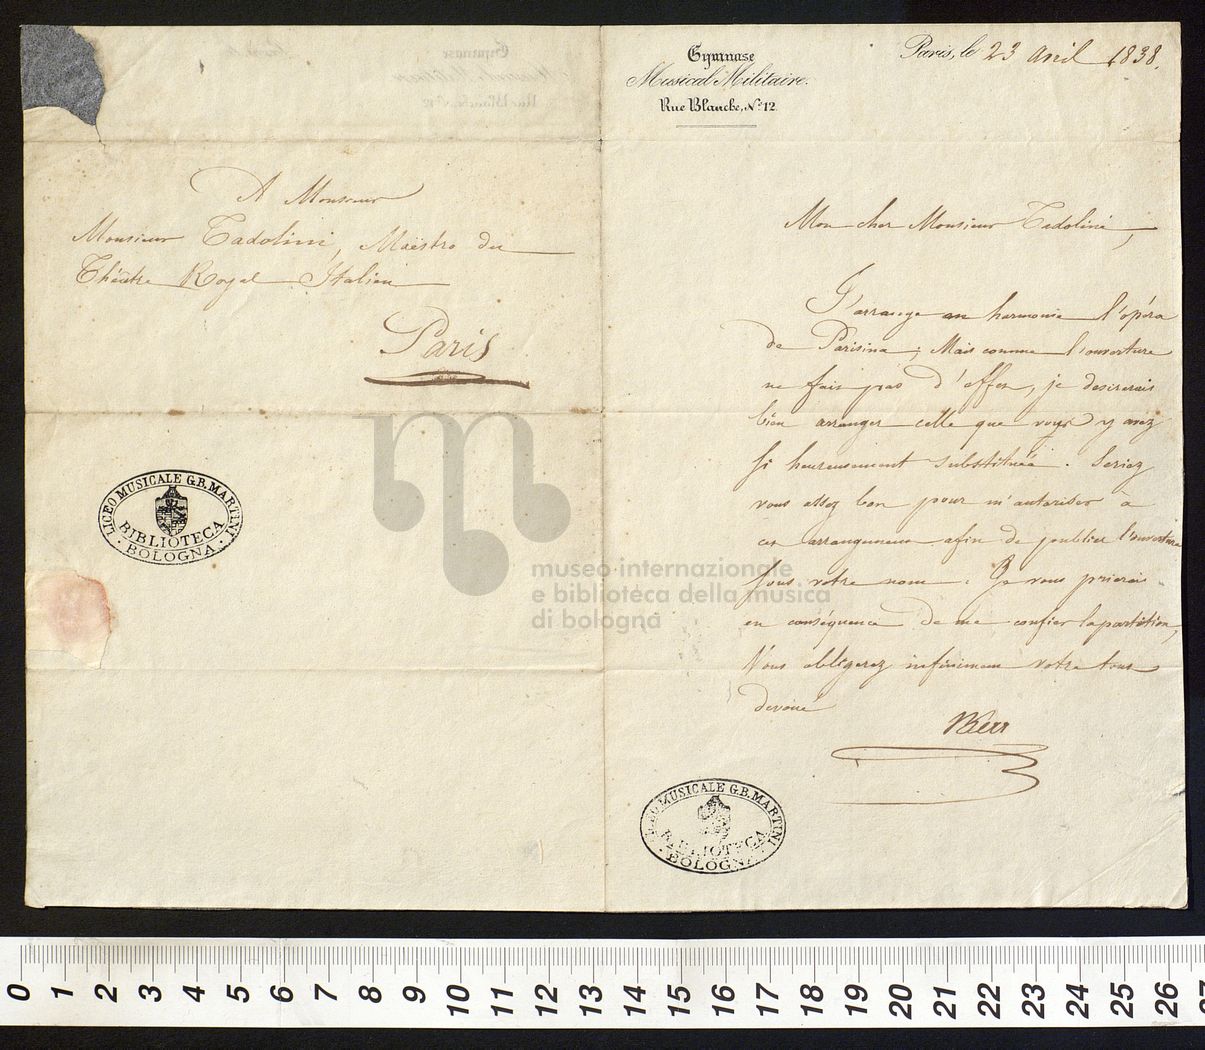 A Monsieur
Monsieur Tadolini, Maëstro du
Théâtre Royal Italien
Paris
LICEO MUSICALE G.B. MARTINI
BIBLIOTECA
BOLOGNA
Gymnase
Musical Militaire.
Rue Blanche, No. 12
Paris, le 23 avril 1838.
Mon cher Monsieur Tadolini,
J'arrange en harmonie l'opéra
de Parisina; Mais comme l'ouverture
ne fais pas d'effet, je desirerais
bien arranger celle que vous y avez
si heureusement substituée. Seriez
vous assez bon pour m'autoriser à
cet arrangement afin de publier l'ouverture
sous votre nom. Je vous prierais
en conséquence de me confier la partition,
Vous obligerez infiniment votre tout
devoué
Berr
LICEO MUSICALE G.B. MARTINI
BIBLIOTECA
BOLOGNA
museo internazionale
e biblioteca della musica
di bologna
0 1 2 3 4 5 6 7 8 9 10 11 12 13 14 15 16 17 18 19 20 21 22 23 24 25 26 27